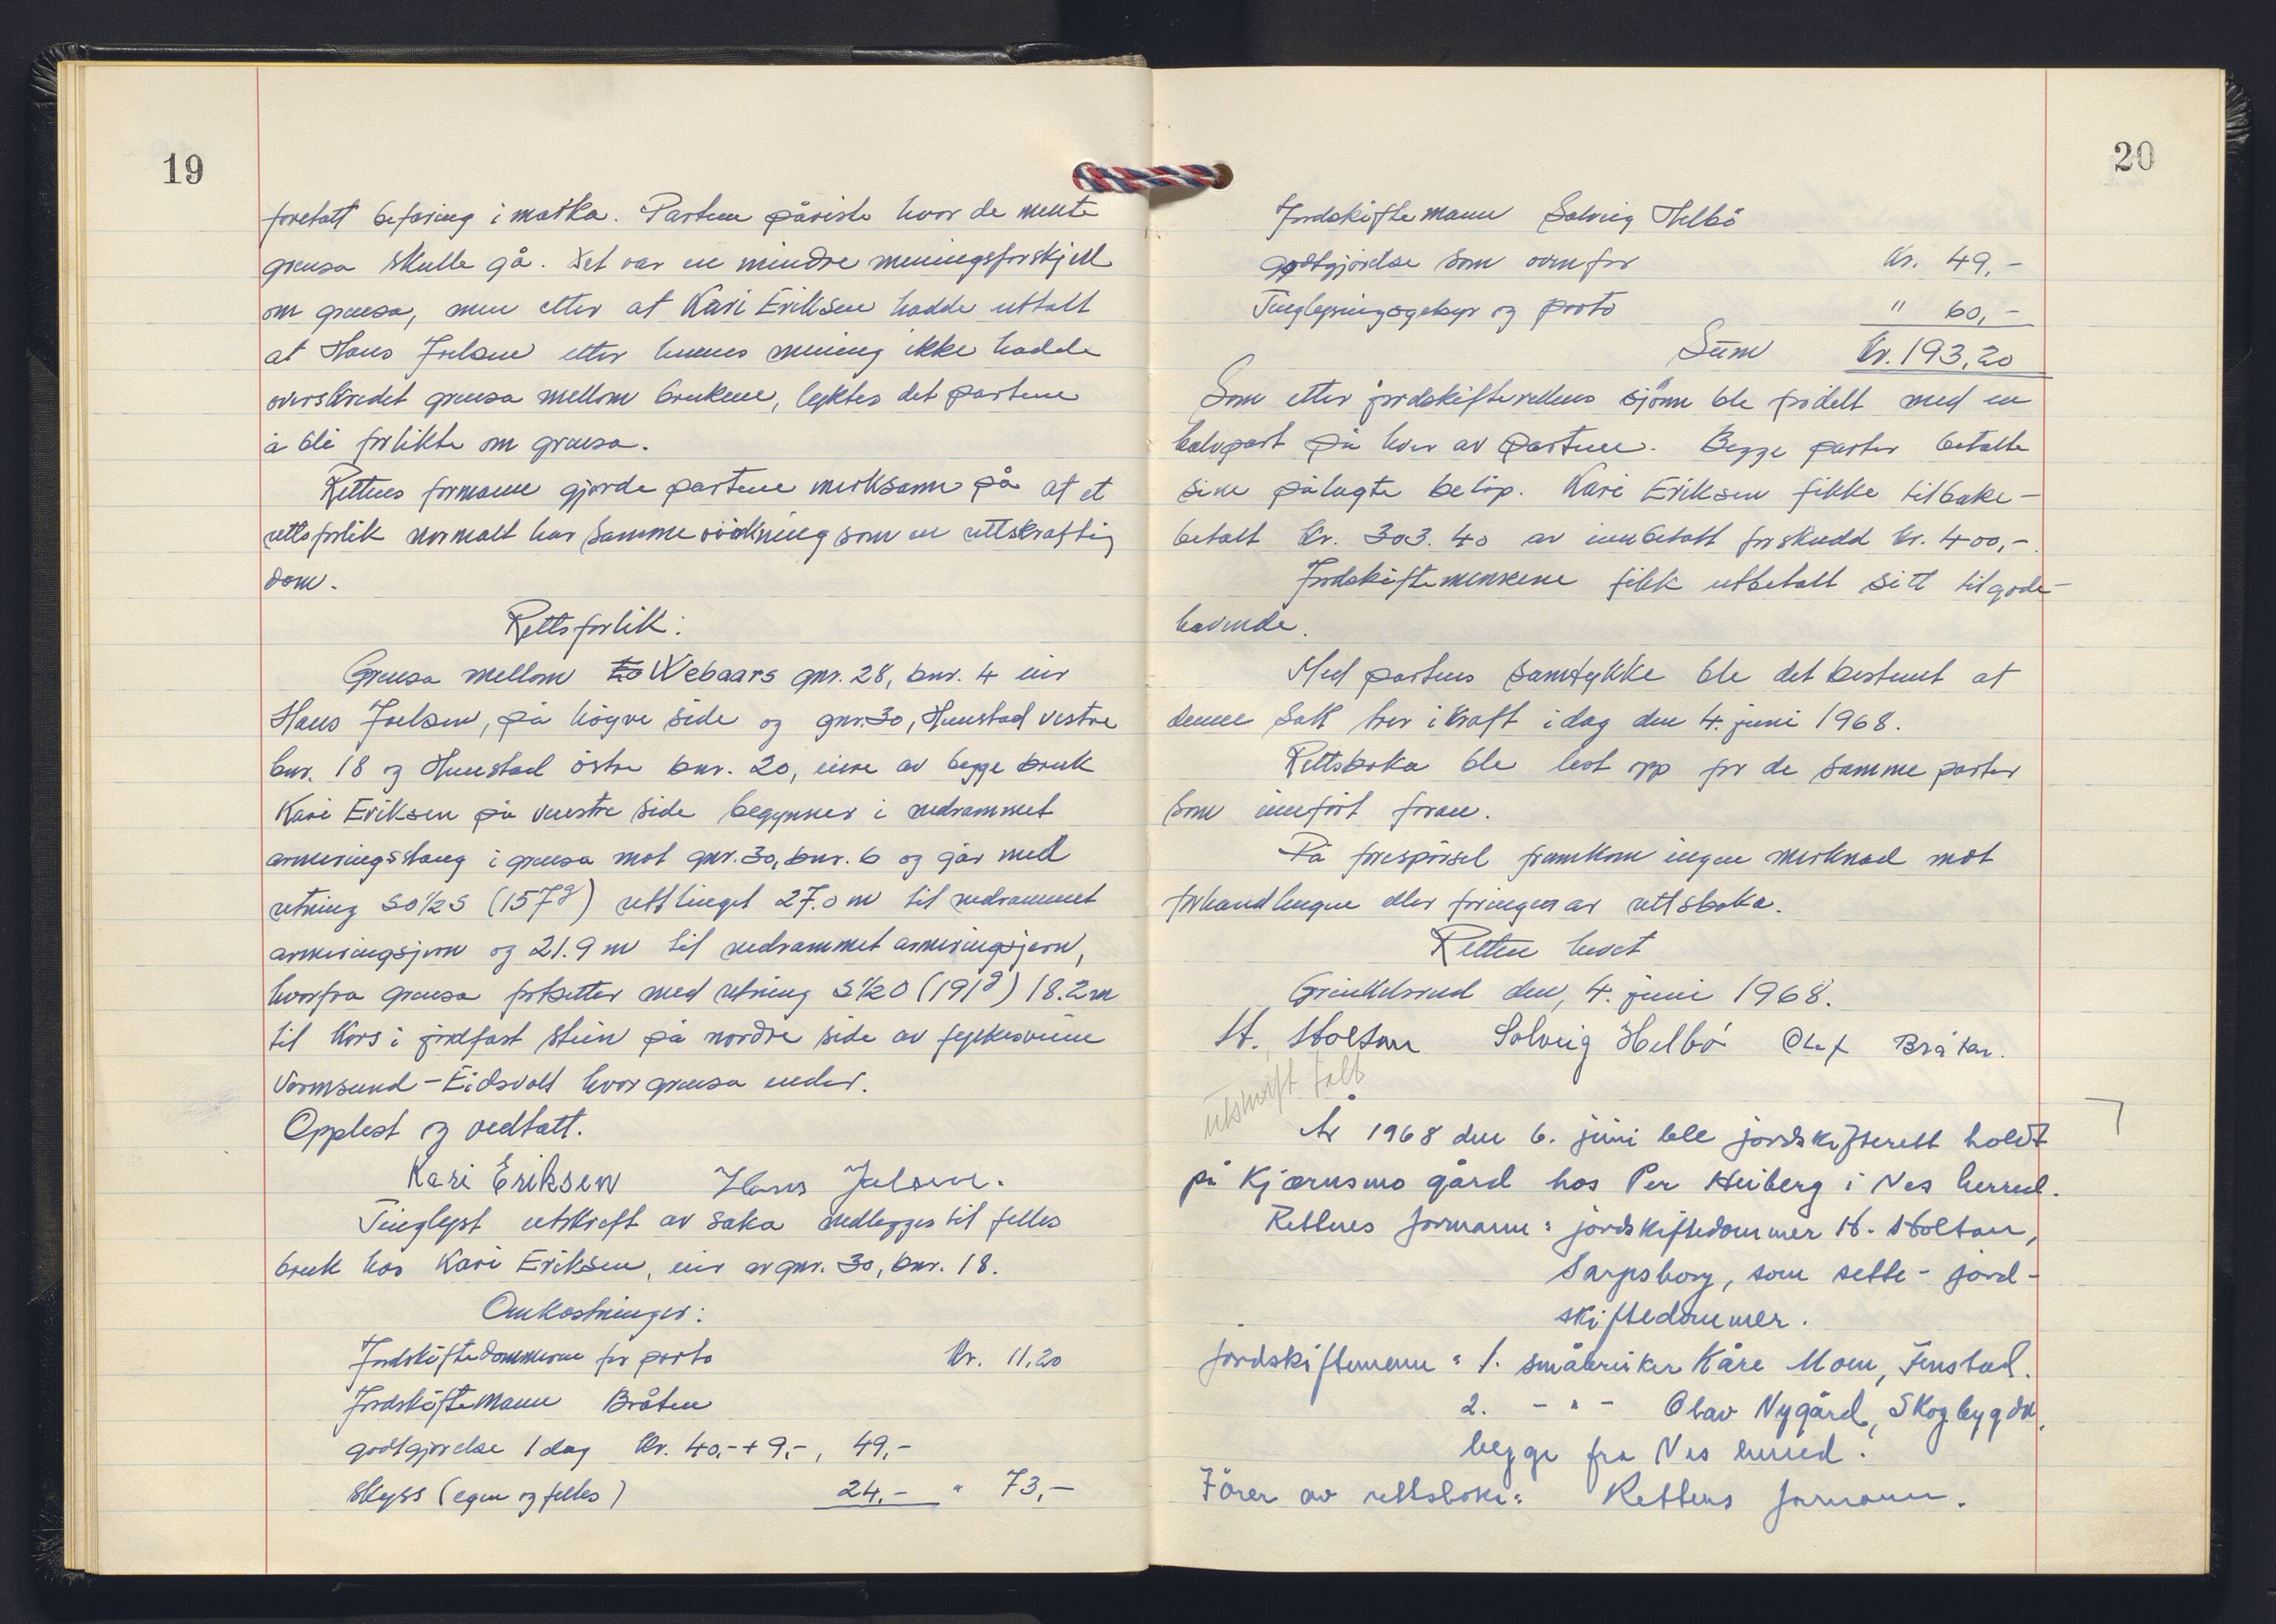 19
foretatt befaring i marka. Partene påviste hvor de mente
grensa skulle gå. Det var en mindre meningsforskjell
om grensa, men etter at Kari Eriksen hadde uttalt
at Hans Joelsen etter hennes mening ikke hadde
overskredet grensa mellom brukene, lyktes det partene
å bli forlikte om grensa.
Rettens formann gjorde partene merksam på at et
rettsforlik normalt har samme virkning som en rettskraftig
dom.
Rettsforlik:
Grensa mellom Webaars gnr. 28, bnr. 4 eier
Hans Joelsen, på högre side og gnr. 30, Hunstad vestre
bnr. 18 og Hunstad östre bnr. 20, eiere av begge bruk
Kari Eriksen på venstre side begynner i nedrammet
armeringsstang i grensa mot gnr. 30, bnr. 6 og går med
retning SO½S (157g) rettlinjet 27.0 m til nedrammet
armeringsjern og 21.9 m til nedrammet armeringsjern,
hvorfra grensa fortsetter med retning S½O (191g) 18.2 m
til kors i jordfast stein på nordre side av fylkesveien
Vormsund - Eidsvoll hvor grensa ender.
Opplest og vedtatt.
Kari Eriksen Hans Joelsen.
Tinglyst utskrift av saka nedlegges til felles
bruk hos Kari Eriksen, eier av gnr. 30, bnr. 18.
Omkostninger:
Jordskiftedommeren for porto Kr. 11,20
Jordskiftemann Bråten
godtgjørelse 1 dag Kr. 40,- + 9,-, 49,-
Skyss (egen og felles) 24,- " 73,-
20
Jordskiftemann Solveig Helbö
godtgjørelse som ovenfor Kr. 49,-
Tinglysningsgebyr og porto " 60,-
Sum Kr. 193,20
Som etter jordskifterettens skjönn ble fordelt med en
halvpart på hver av partene. Begge parter betalte
sine pålagte belöp. Kari Eriksen fikk tilbake-
betalt kr. 303.40 av innbetalt forskudd kr. 400,-.
Jordskiftemennene fikk utbetalt sitt tilgode-
havende.
Med partenes samtykke ble det bestemt at
denne sak trer i kraft i dag den 4. juni 1968.
Rettsboka ble lest opp for de samme parter
som innfört foran.
På forespörsel framkom ingen merknad mot
forhandlingen eller föringen av rettsboka.
Retten hevet
Grinkelsrud den, 4. juni 1968.
H. Holtan Solveig Helbö Olaf Bråten.
utskrift falt
År 1968 den 6. juni ble jordskifterett holdt
på Kjærnsmo gård hos Per Heiberg i Nes herred.
Rettens formann: jordskiftedommer H. Holtan,
Sarpsborg, som sette-jord-
skiftedommer.
Jordskiftemenn: 1. småbruker Kåre Moen, Fenstad.
2. - " - Olav Nygård, Skogbygda,
begge fra Nes herred.
Förer av rettsboka: Rettens formann.